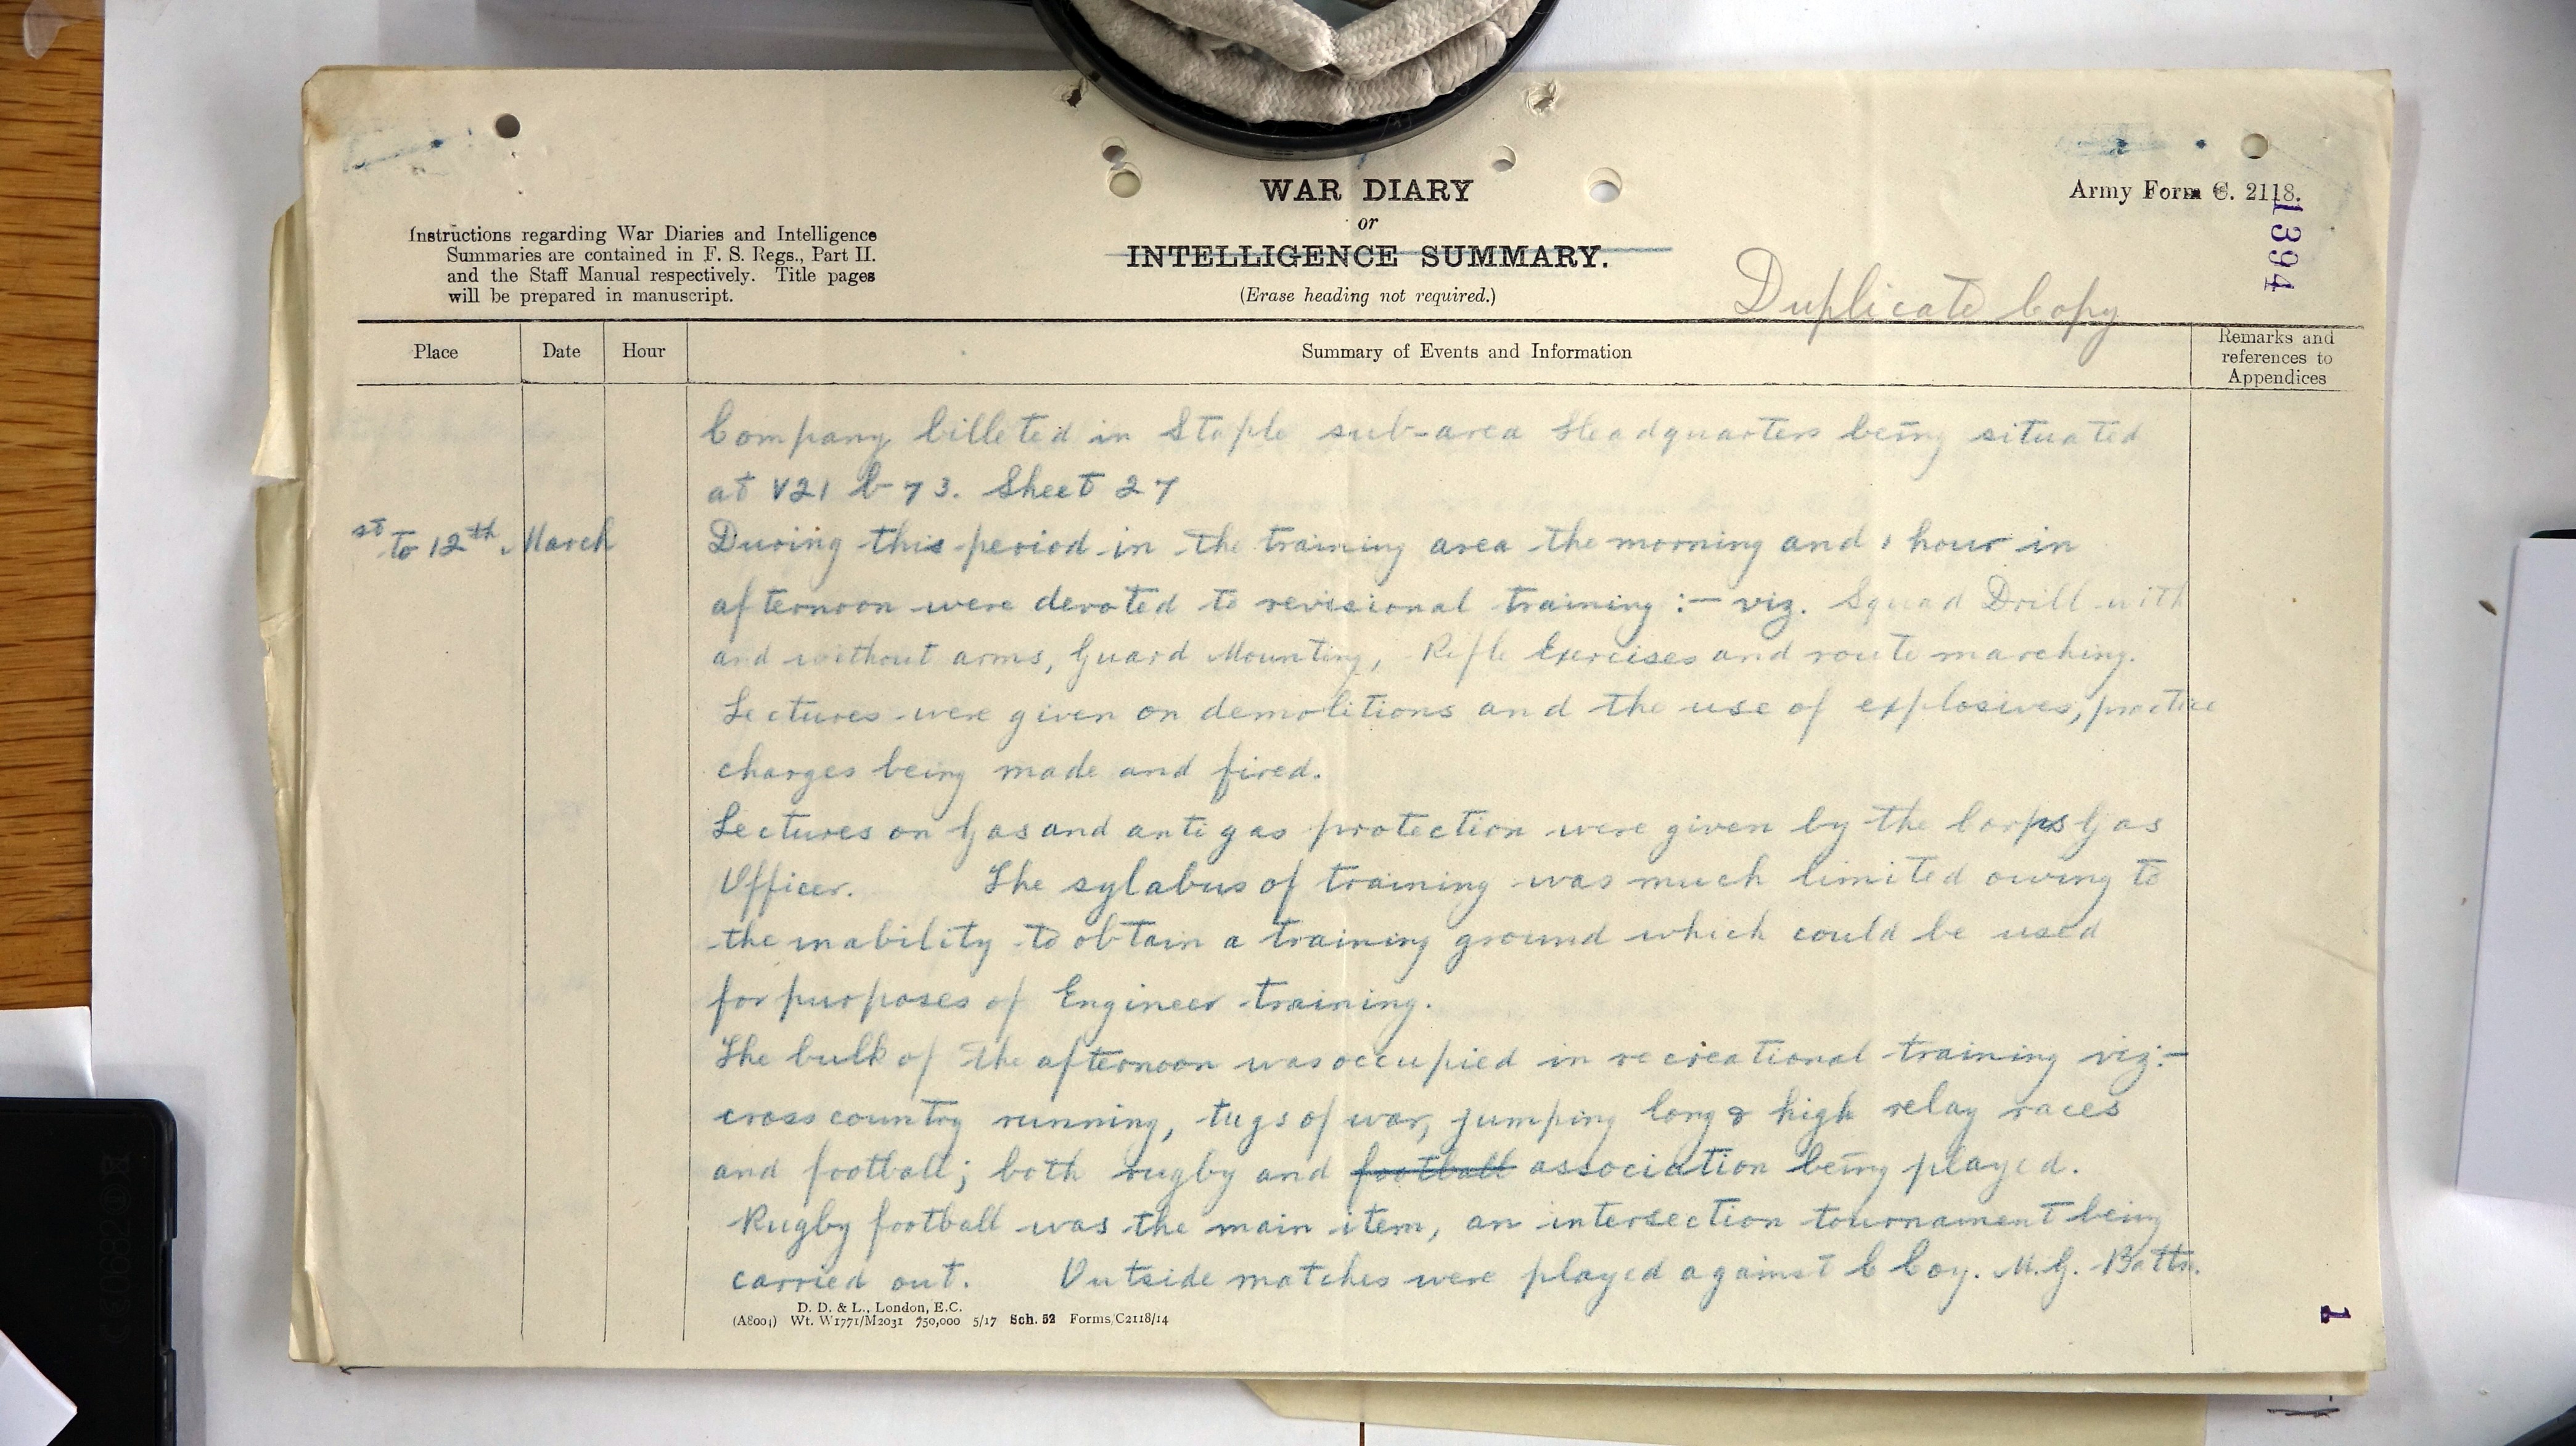 WAR DIARY
or
INTELLIGENCE SUMMARY.
(Erase heading not required.)
Army Form C. 2118.
1394
Instructions regarding War Diaries and Intelligence
Summaries are contained in F. S. Regs., Part II.
and the Staff Manual respectively. Title pages
will be prepared in manuscript.
Duplicate Copy
Place
Date
Hour
Summary of Events and Information
Remarks and
references to
Appendices
Company billeted in Staple sub-area Headquarters being situated
at V21 b 73. Sheet 27
st to 12th March
During this period in the training area the morning and 1 hour in
afternoon were devoted to revisional training :- viz. Squad Drill with
and without arms, Guard Mounting, Rifle Exercises and route marching.
Lectures were given on demolitions and the use of explosives, practice
charges being made and fired.
Lectures on Gas and anti gas protection were given by the Corps Gas
Officer. The sylabus of training was much limited owing to
the inability to obtain a training ground which could be used
for purposes of Engineer training.
The bulk of the afternoon was occupied in recreational training viz:-
cross country running, tugs of war, jumping long & high relay races
and football; both rugby and football association being played.
Rugby football was the main item, an intersection tournament being
carried out. Outside matches were played against C Coy. M.G. Battn.
D. D. & L., London, E.C.
(A8001) Wt. W1771/M2031 750,000 5/17 Sch. 52 Forms/C2118/14
1